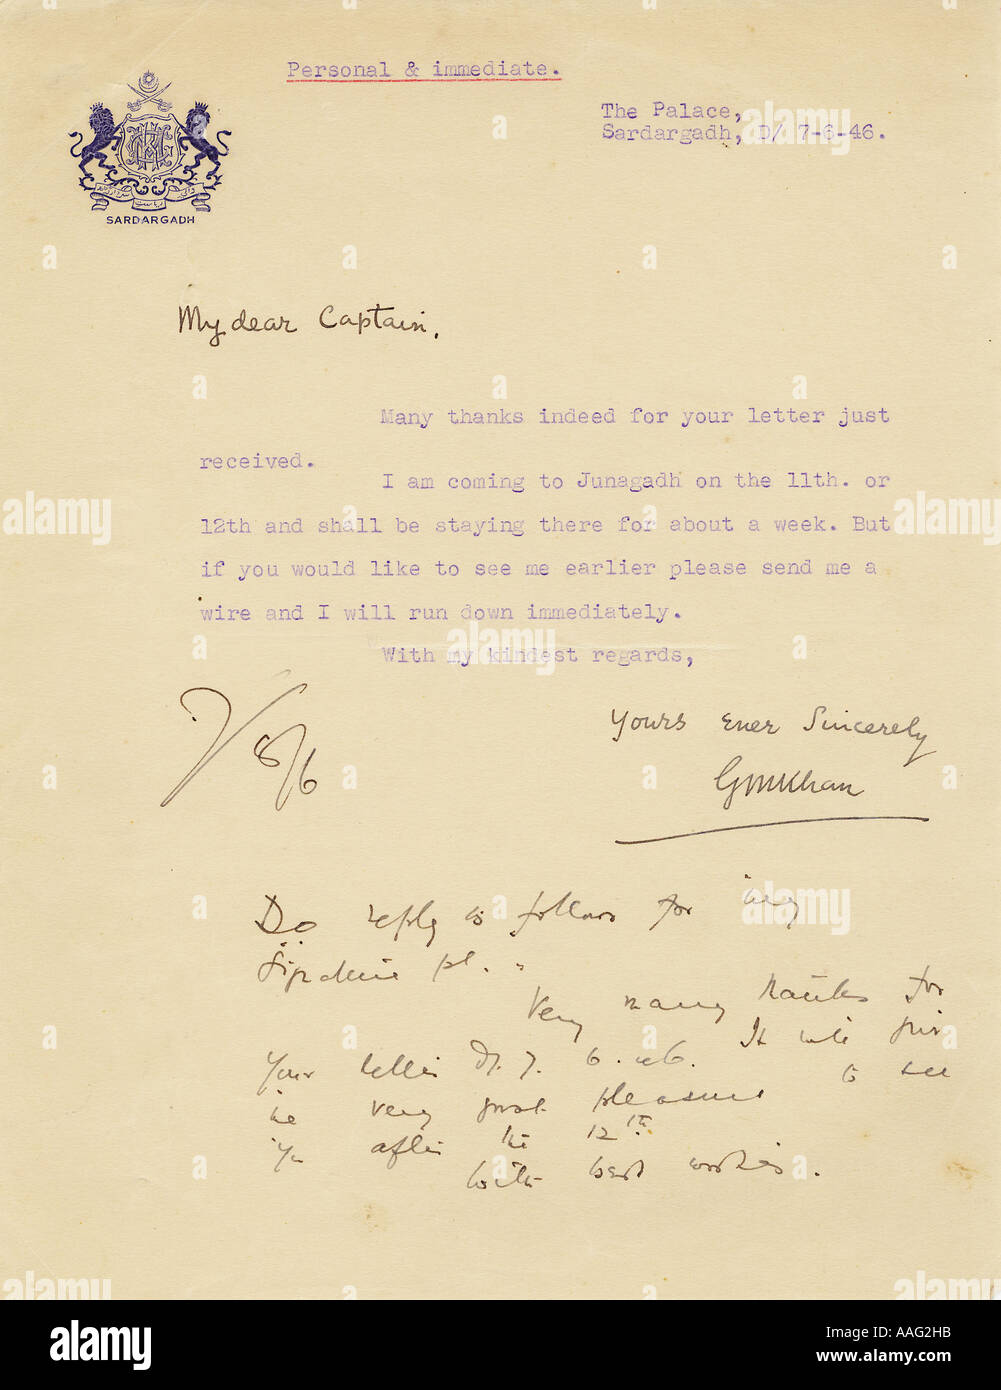 Personal & immediate.
The Palace,
Sardargadh, D/ 7-6-46.
SARDARGADH
My dear Captain,
Many thanks indeed for your letter just
received.
I am coming to Junagadh on the 11th. or
12th and shall be staying there for about a week. But
if you would like to see me earlier please send me a
wire and I will run down immediately.
With my kindest regards,
Yours ever Sincerely
GMKhan
8/6
Do reply as follows for my
signature pl.
Very many thanks for
your letter D/. 7. 6. 46. It will give
me very great pleasure to see
you after the 12th.
With best wishes.
alamy
Image ID: AAG2HB
www.alamy.com